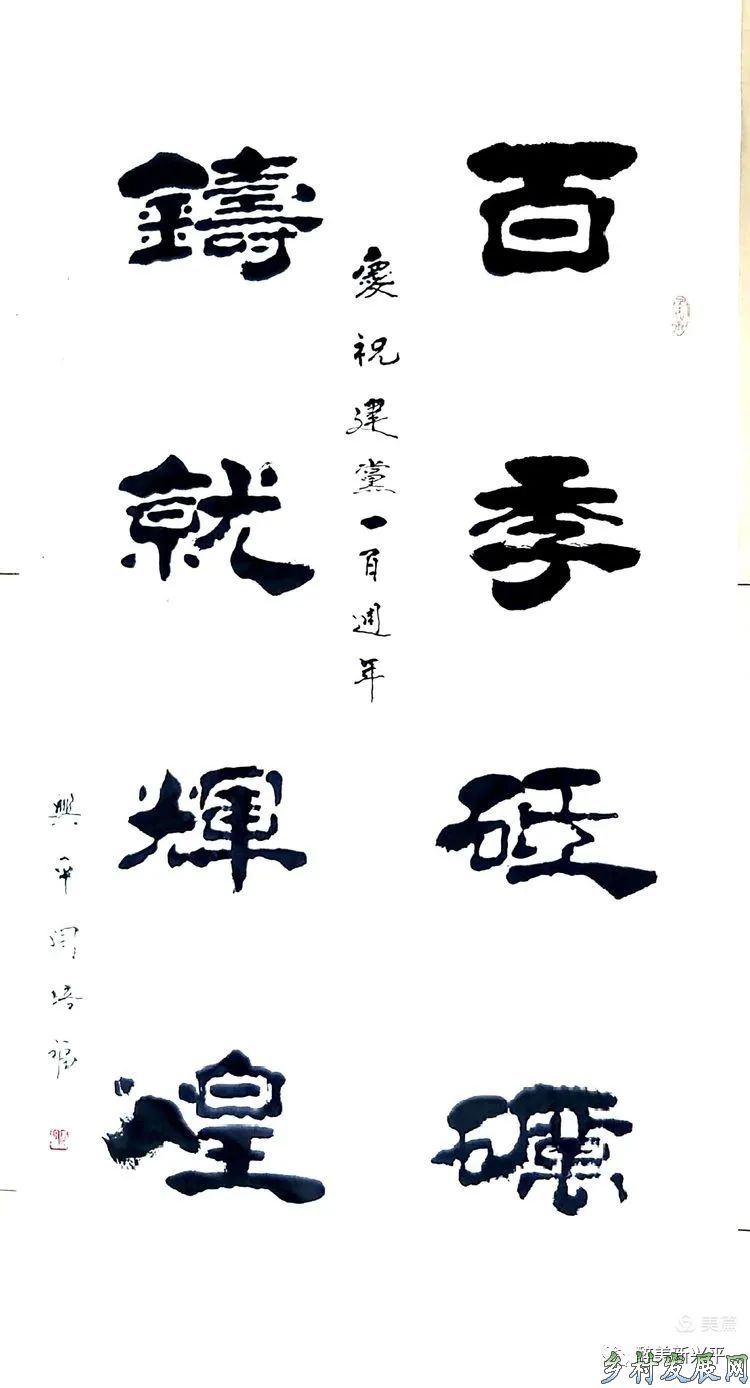 百秊砥礪
慶祝建黨一百週年
鑄就輝煌
興平培福
美篇
醉美新兴平
乡村发展网